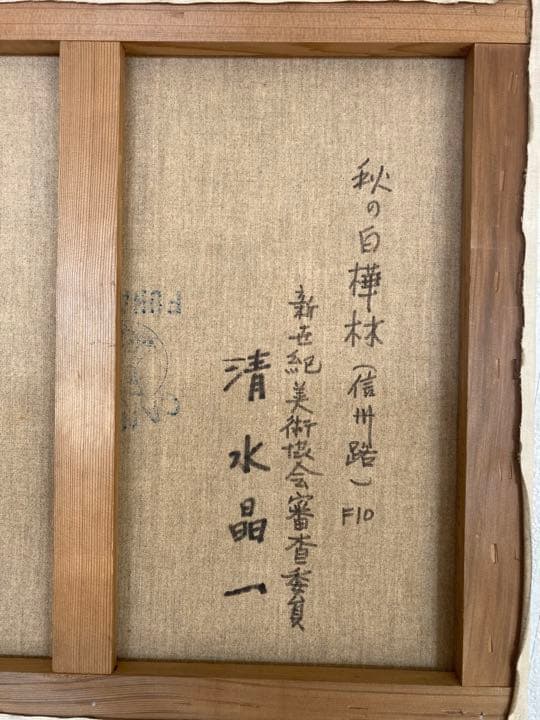 秋の白樺林（信州路）F10
新世紀美術協会審査委員
清水晶一